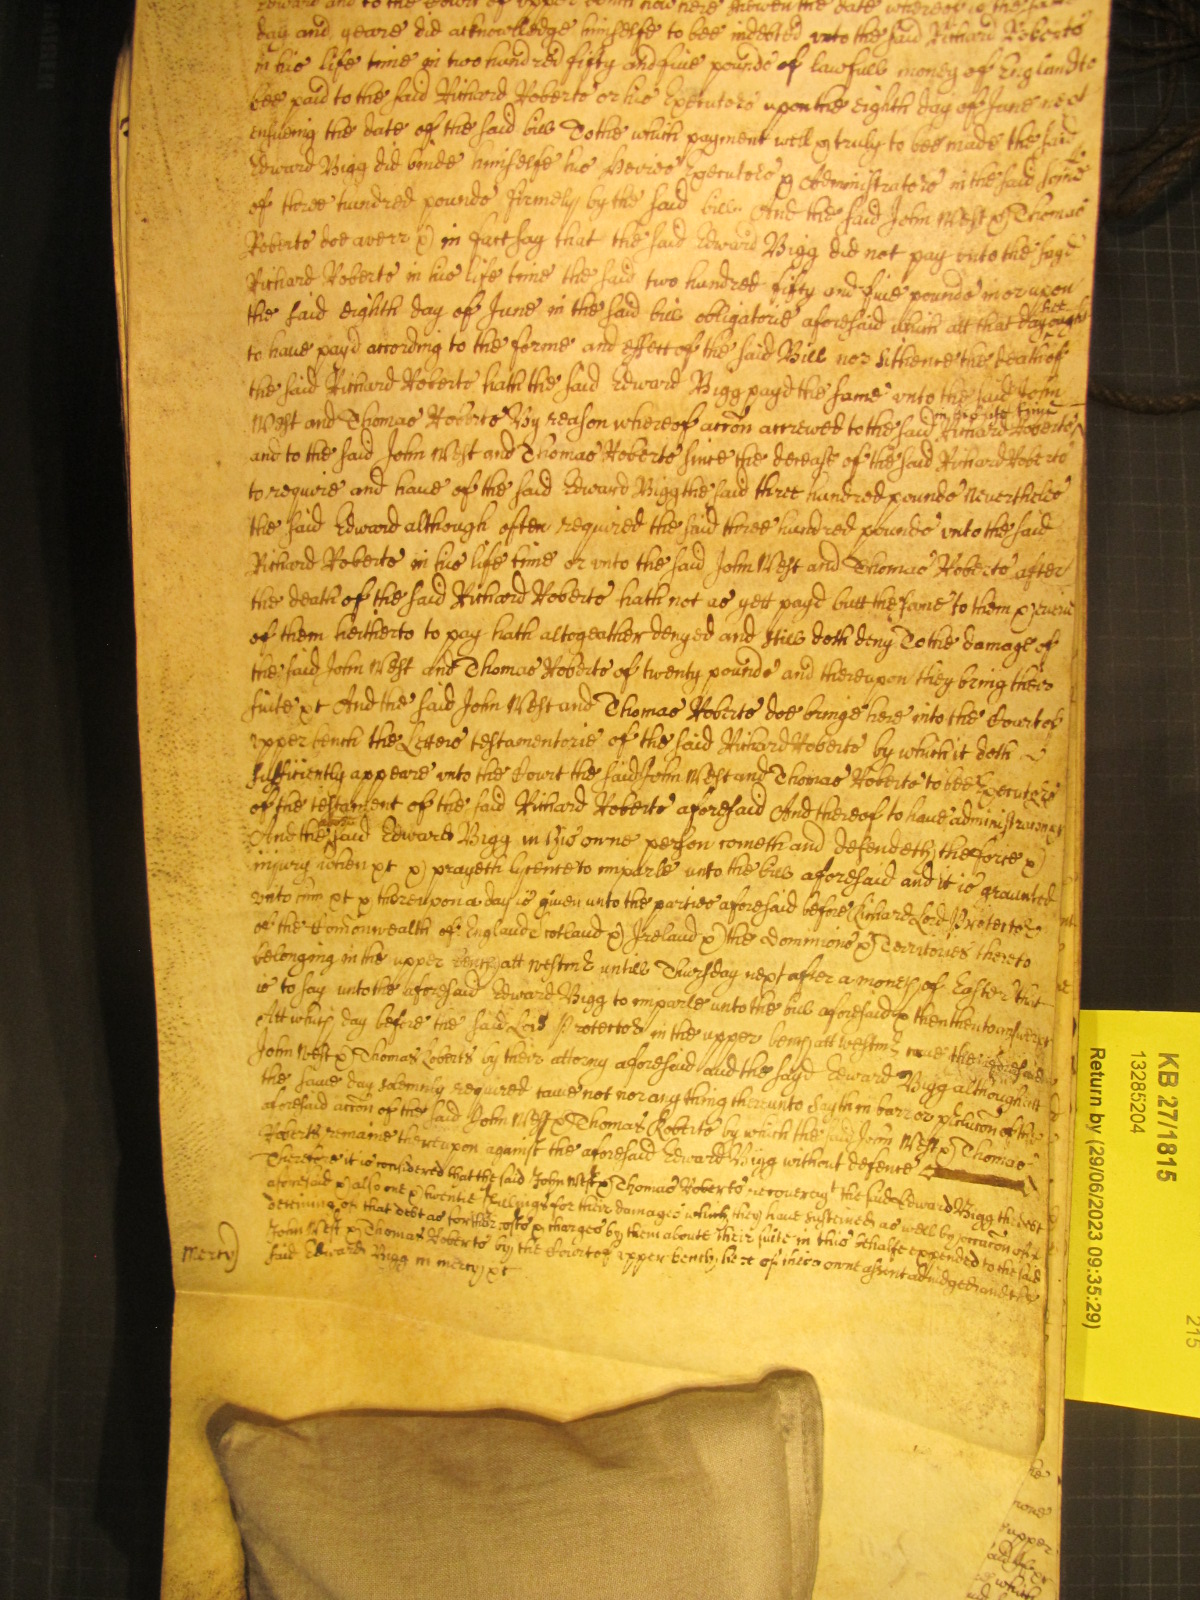 Edward and to the Court of upper bench now here shewen the date whereof is the same
day and yeare did acknowledge himselfe to bee indebted unto the said Richard Roberts
in his life time in two hundred fifty and five pounds of lawfull money of England to
bee paid to the said Richard Roberts or his Executors upon the eighth day of June next
ensueing the date of the said bill To the which payment well & truly to bee made the said
Edward Bigg did binde himselfe his heires Executors & Administrators in the said some
of three hundred pounds firmely by the said bill And the said John West & Thomas
Roberts doe averr & in fact say that the said Edward Bigg did not pay unto the sayd
Richard Roberts in his life time the said two hundred fifty and five pounds in or upon
the said eighth day of June in the said bill obligatorie aforesaid which att that day hee ought
to have payd according to the forme and effect of the said Bill nor sithence the death of
the said Richard Roberts hath the said Edward Bigg payd the same unto the said John
West and Thomas Roberts By reason whereof accon accrewed to the said Richard Roberts in his life time
and to the said John West and Thomas Roberts since the decease of the said Richard Roberts
to require and have of the said Edward Bigg the said three hundred pounds Neverthelesse
the said Edward although often required the said three hundred pounds unto the said
Richard Roberts in his life time or unto the said John West and Thomas Roberts after
the death of the said Richard Roberts hath not as yett payd butt the same to them &
of them heitherto to pay hath altogeather denyed and still doth deny To the damage of
the said John West and Thomas Roberts of twenty pounds and thereupon they bring their
suite &c And the said John West and Thomas Roberts doe bringe here into the Court of
upper bench the Letters testamentorie of the said Richard Roberts by which it doth
sufficiently appeare unto the Court the said John West and Thomas Roberts to bee Executors
of the testament of the said Richard Roberts aforesaid And thereof to have administracon &c
And the said Edward Bigg in his owne person cometh and defendeth the force &
injury when &c & prayeth lycence to imparle unto the bill aforesaid and it is graunted
unto him &c & thereupon a day is given unto the parties aforesaid before Richard Lord Protector
of the Comonwealth of England Scotland & Ireland & the Dominions & Territories thereto
belonging in the upper bench att Westmr untill Thursday next after a moneth of Easter that
is to say unto the aforesaid Edward Bigg to imparle unto the bill aforesaid & then then to answere &c
Att which day before the said Lord Protector in the upper bench att Westmr came the aforesaid
John West & Thomas Roberts by their attorny aforesaid and the sayd Edward Bigg although att
the same day solemnly required came not nor any thing thereunto sayth in barr or preclucon of the
aforesaid accon of the said John West & Thomas Roberts by which the said John West & Thomas
Roberts remaine thereupon against the aforesaid Edward Bigg without defence
Therefore it is considered that the said John West & Thomas Roberts recover agt the said Edward Bigg the debt
aforesaid & also one & twentie shillings for their damages which they have susteined as well by occacon of the
detaining of that debt as for their costs & charges by them aboute their suite in this behalfe expended to the said
John West & Thomas Roberts by the Court of upper bench here of theire owne assent adiudged and the
said Edward Bigg in mercy &c
Mercy
KB 27/1815
13285204
Return by (29/06/2023 09:35:29)
215
he
none
upper